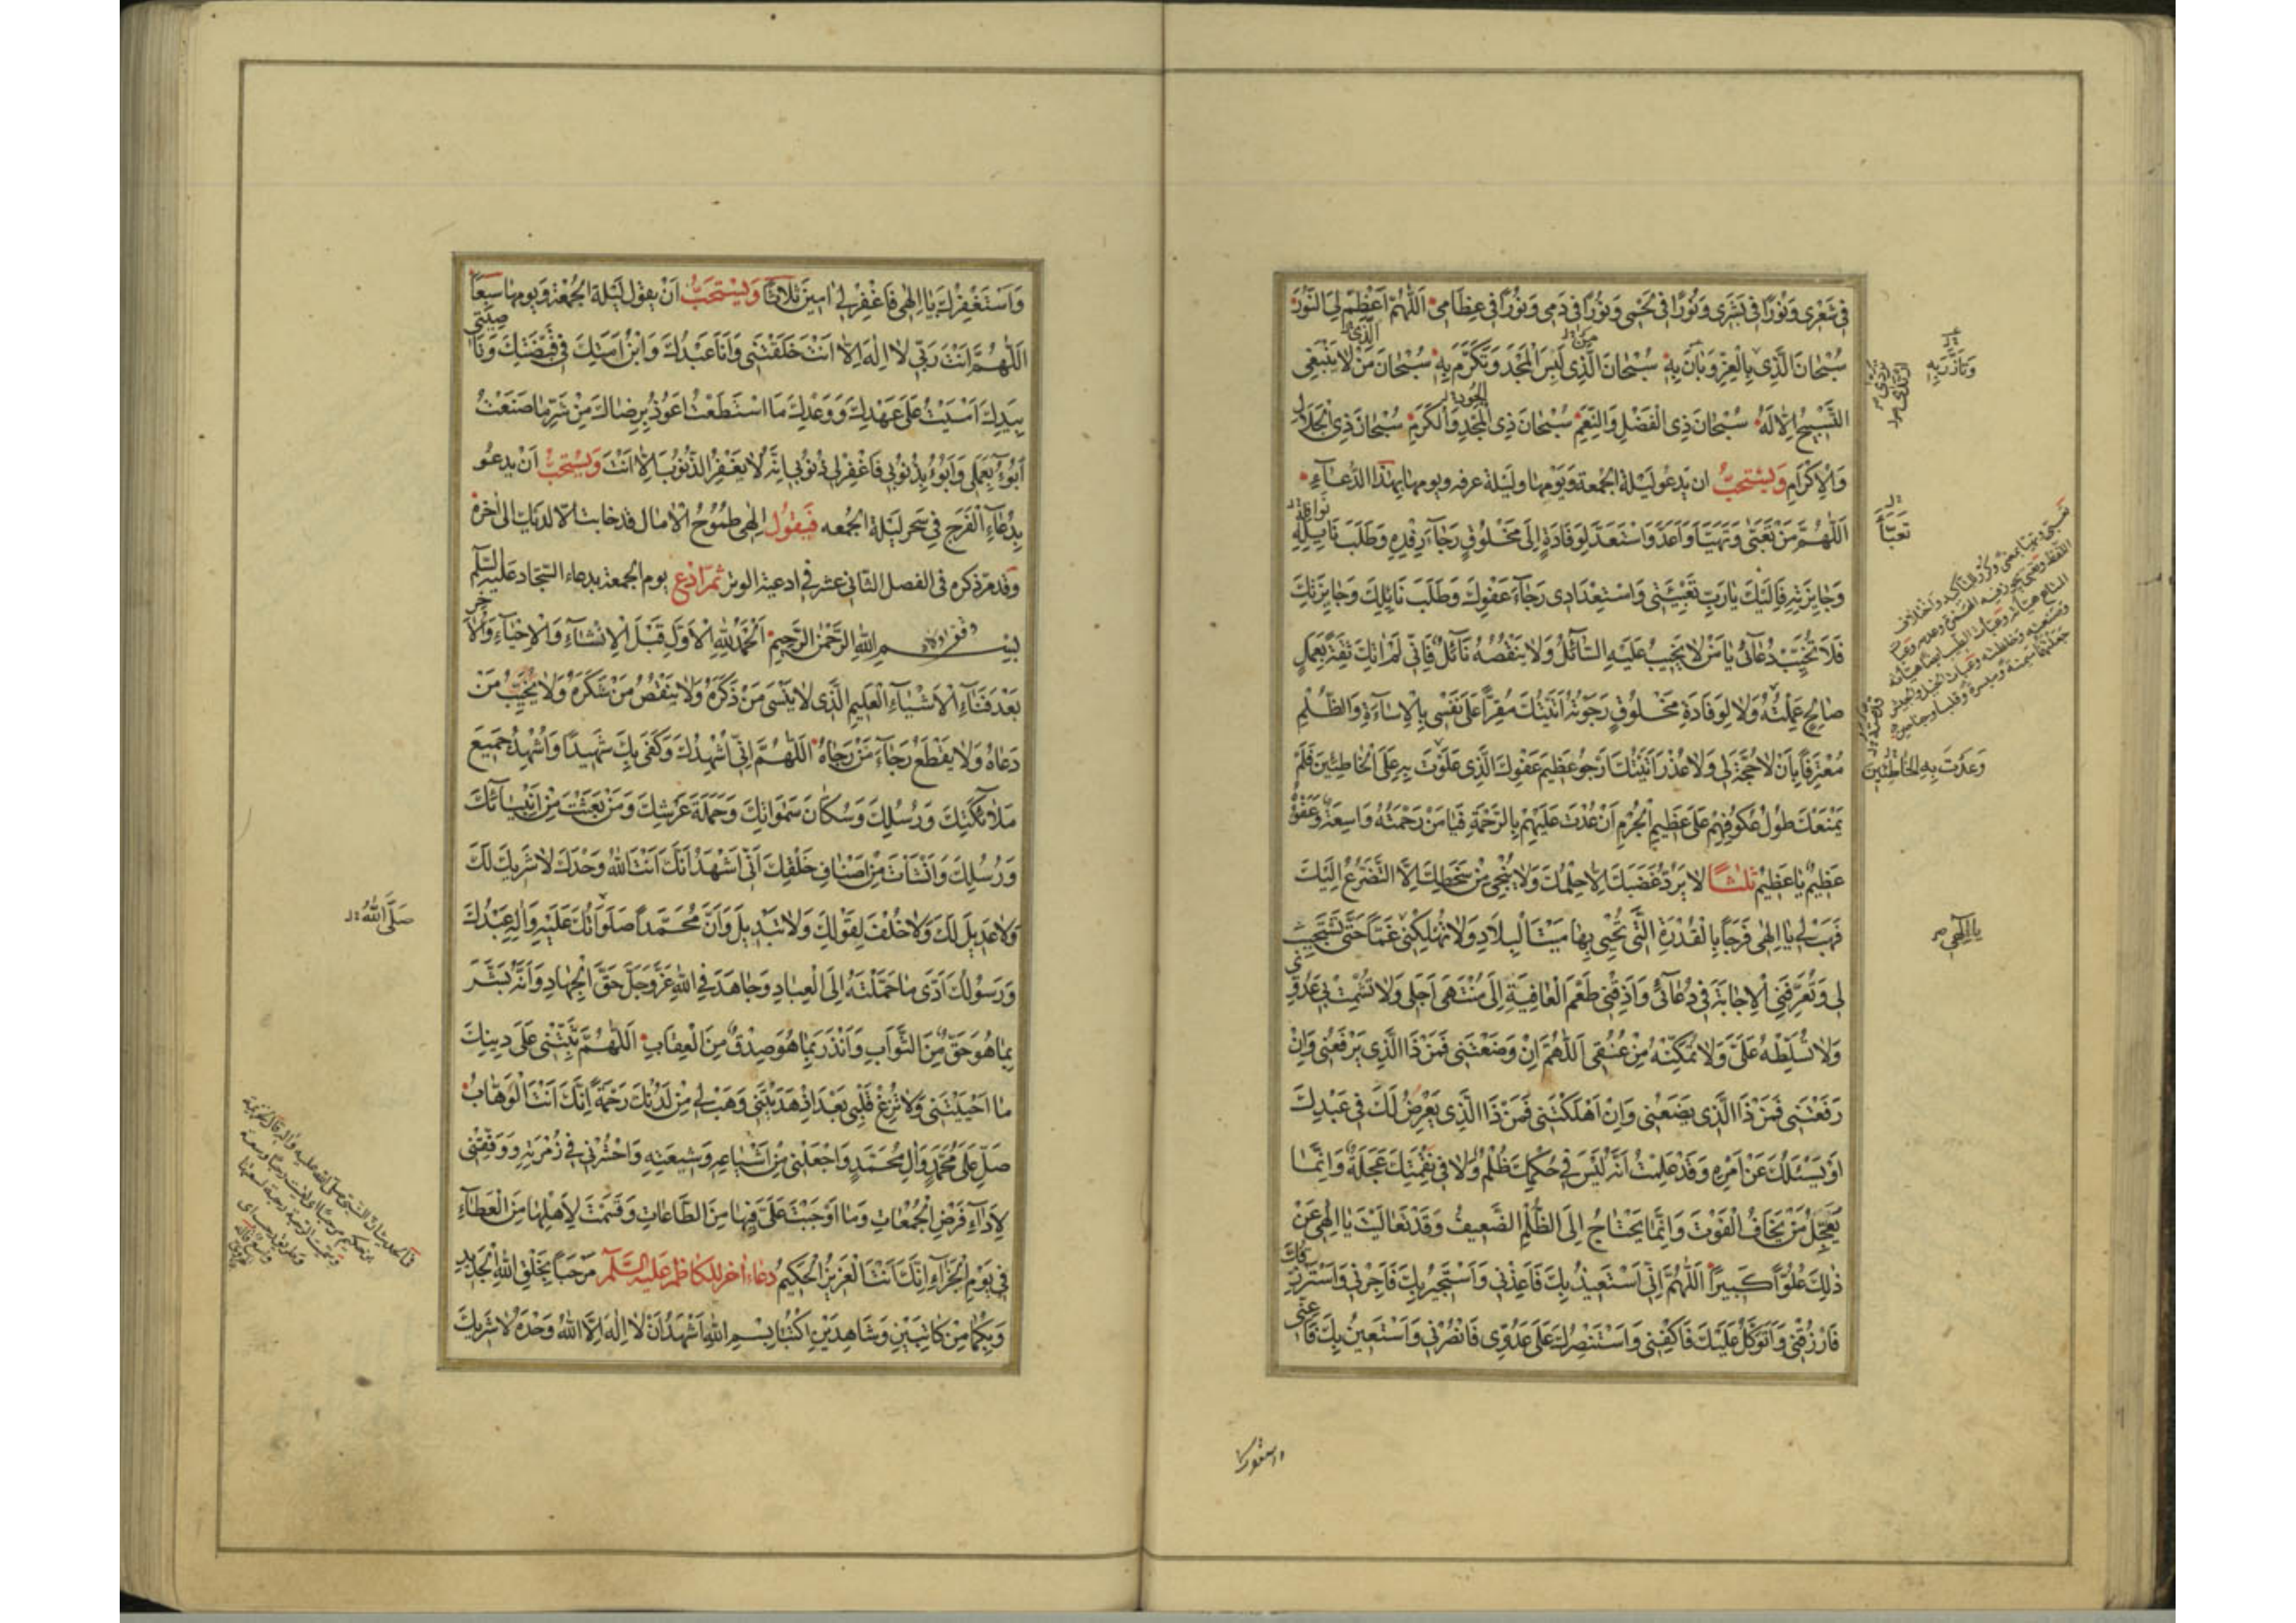 فِي شَعْرِي وَنُورًا فِي بَشَرِي وَنُورًا فِي لَحْمِي وَنُورًا فِي دَمِي وَنُورًا فِي عِظَامِي اَللّٰهُمَّ اَعْظِمْ لِيَ النُّورَ
سُبْحَانَ الَّذِي بِالْعِزِّ وَبَانَ بِهِ سُبْحَانَ الَّذِي لَبِسَ الْمَجْدَ وَتَكَرَّمَ بِهِ سُبْحَانَ مَنْ لَا يَنْبَغِي
التَّسْبِيحُ اِلَّا لَهُ سُبْحَانَ ذِي الْفَضْلِ وَالنِّعَمِ سُبْحَانَ ذِي الْمَجْدِ وَالْكَرَمِ سُبْحَانَ ذِي الْجَلَالِ
وَالْاِكْرَامِ وَيُسْتَحَبُّ ان يَدعُو لَيْلَةَ الجُمعة وَيَوْمَهَا وليلَة عرفه ويومها بِهٰذَا الدُّعَآءِ
اَللّٰهُمَّ مَنْ تَعَبَّى وَتَهَيَّأَ وَاَعَدَّ وَاسْتَعَدَّ لِوِفَادَةٍ اِلَى مَخْلُوقٍ رَجَآءَ رِفْدِهِ وَطَلَبَ نَايِلِهِ
وَجَايِزَتِهِ فَاِلَيْكَ يَا رَبِّ تَعْبِيَتِي وَاسْتِعْدَادِي رَجَآءَ عَفْوِكَ وَطَلَبَ نَائِلِكَ وَجَايِزَتِكَ
فَلَا تُخَيِّبْ دُعَآئِي يَا مَنْ لَا يَخِيبُ عَلَيْهِ السَّآئِلُ وَلَا يَنْقُصُهُ نَآئِلٌ فَاِنِّي لَمْ اٰتِكَ ثِقَةً بِعَمَلٍ
صَالِحٍ عَمِلْتُهُ وَلَا لِوِفَادَةِ مَخْلُوقٍ رَجَوْتُهُ اَتَيْتُكَ مُقِرًّا عَلَى نَفْسِي بِالْاِسَآءَةِ وَالظُّلْمِ
مُعْتَرِفًا بِاَنْ لَا حُجَّةَ لِي وَلَا عُذْرَ اَتَيْتُكَ اَرْجُو عَظِيمَ عَفْوِكَ الَّذِي عَلَوْتَ بِهِ عَلَى الْخَاطِئِينَ فَلَمْ
يَمْنَعْكَ طُولُ عُكُوفِهِمْ عَلَى عَظِيمِ الْجُرْمِ اَنْ عُدْتَ عَلَيْهِمْ بِالرَّحْمَةِ فَيَا مَنْ رَحْمَتُهُ وَاسِعَةٌ وَعَفْوُهُ
عَظِيمٌ يَا عَظِيمُ ثَلٰثًا لَا يَرُدُّ غَضَبَكَ اِلَّا حِلْمُكَ وَلَا يُنْجِي مِنْ سَخَطِكَ اِلَّا التَّضَرُّعُ اِلَيْكَ
فَهَبْ لِي يَا اِلٰهِي فَرَجًا بِالْقُدْرَةِ الَّتِي تُحْيِي بِهَا مَيْتَ الْبِلَادِ وَلَا تُهْلِكْنِي غَمًّا حَتَّى تَسْتَجِيبَ
لِي وَتُعَرِّفَنِي الْاِجَابَةَ فِي دُعَآئِي وَاَذِقْنِي طَعْمَ الْعَافِيَةِ اِلَى مُنْتَهَى اَجَلِي وَلَا تُشْمِتْ بِي عَدُوِّي
وَلَا تُسَلِّطْهُ عَلَيَّ وَلَا تُمَكِّنْهُ مِنْ عُنُقِي اَللّٰهُمَّ اِنْ وَضَعْتَنِي فَمَنْ ذَا الَّذِي يَرْفَعُنِي وَاِنْ
رَفَعْتَنِي فَمَنْ ذَا الَّذِي يَضَعُنِي وَاِنْ اَهْلَكْتَنِي فَمَنْ ذَا الَّذِي يَعْرِضُ لَكَ فِي عَبْدِكَ
اَوْ يَسْئَلُكَ عَنْ اَمْرِهِ وَقَدْ عَلِمْتُ اَنَّهُ لَيْسَ فِي حُكْمِكَ ظُلْمٌ وَلَا فِي نَقِمَتِكَ عَجَلَةٌ وَاِنَّمَا
يَعْجَلُ مَنْ يَخَافُ الْفَوْتَ وَاِنَّمَا يَحْتَاجُ اِلَى الظُّلْمِ الضَّعِيفُ وَقَدْ تَعَالَيْتَ يَا اِلٰهِي عَنْ
ذٰلِكَ عُلُوًّا كَبِيرًا اَللّٰهُمَّ اِنِّي اَسْتَعِيذُ بِكَ فَاَعِذْنِي وَاَسْتَجِيرُ بِكَ فَاَجِرْنِي وَاَسْتَرْزِقُكَ
فَارْزُقْنِي وَاَتَوَكَّلُ عَلَيْكَ فَاكْفِنِي وَاَسْتَنْصِرُكَ عَلَى عَدُوِّي فَانْصُرْنِي وَاَسْتَعِينُ بِكَ فَاَعِنِّي
وَتَأَزَّرَ بِهِ
تَعَبَّأَ
وَعُدْتَ بِهِ الخَاطِئِينَ
يَا اِلٰهِي
واستغفرك
وَاَسْتَغْفِرُكَ يَا اِلٰهِي فَاغْفِرْ لِي اٰمِينَ ثَلَاثًا وَيُسْتَحَبُّ اَنْ يقول لَيْلَةَ الْجُمْعَة وَيومها سَبْعًا
اَللّٰهُمَّ اَنْتَ رَبِّي لَا اِلٰهَ اِلَّا اَنْتَ خَلَقْتَنِي وَاَنَا عَبْدُكَ وَابْنُ اَمَتِكَ فِي قَبْضَتِكَ وَنَاصِيَتِي
بِيَدِكَ اَمْسَيْتُ عَلَى عَهْدِكَ وَوَعْدِكَ مَا اسْتَطَعْتُ اَعُوذُ بِرِضَاكَ مِنْ شَرِّ مَا صَنَعْتُ
اَبُوءُ بِعَمَلِي وَاَبُوءُ بِذُنُوبِي فَاغْفِرْ لِي ذُنُوبِي اِنَّهُ لَا يَغْفِرُ الذُّنُوبَ اِلَّا اَنْتَ وَيُسْتَحَبُّ اَنْ يدعُو
بِدُعَاءِ الْفَرَجِ فِي سَحَرِ لَيْلَة الجُمعه فَيَقُولُ اِلٰهِي طُمُوحُ الْاٰمَال قد خابت الا لديك الى اٰخره
وقد مرّ ذكره في الفصل الثاني عشر في ادعية الوتر ثمّ ادْعُ يوم الجمعة بدعاء السجّاد عَلَيْهِ السَّلَم
بِسْمِ اللّٰهِ الرَّحْمٰنِ الرَّحِيمِ اَلْحَمْدُ لِلّٰهِ الْاَوَّلِ قَبْلَ الْاِنْشَآءِ وَالْاِحْيَآءِ وَالْاٰخِرِ
بَعْدَ فَنَآءِ الْاَشْيَآءِ الْعَلِيمِ الَّذِي لَا يَنْسَى مَنْ ذَكَرَهُ وَلَا يَنْقُصُ مَنْ شَكَرَهُ وَلَا يُخَيِّبُ مَنْ
دَعَاهُ وَلَا يَقْطَعُ رَجَآءَ مَنْ رَجَاهُ اَللّٰهُمَّ اِنِّي اُشْهِدُكَ وَكَفَى بِكَ شَهِيدًا وَاُشْهِدُ جَمِيعَ
مَلَآئِكَتِكَ وَرُسُلِكَ وَسُكَّانَ سَمٰوَاتِكَ وَحَمَلَةَ عَرْشِكَ وَمَنْ بَعَثْتَ مِنْ اَنْبِيَآئِكَ
وَرُسُلِكَ وَاَنْشَاْتَ مِنْ اَصْنَافِ خَلْقِكَ اَنِّي اَشْهَدُ اَنَّكَ اَنْتَ اللّٰهُ وَحْدَكَ لَا شَرِيكَ لَكَ
وَلَا عَدِيلَ لَكَ وَلَا خُلْفَ لِقَوْلِكَ وَلَا تَبْدِيلَ وَاَنَّ مُحَمَّدًا صَلَوَاتُكَ عَلَيْهِ وَاٰلِهِ عَبْدُكَ
وَرَسُولُكَ اَدَّى مَا حَمَّلْتَهُ اِلَى الْعِبَادِ وَجَاهَدَ فِي اللّٰهِ عَزَّ وَجَلَّ حَقَّ الْجِهَادِ وَاَنَّهُ بَشَّرَ
بِمَا هُوَ حَقٌّ مِنَ الثَّوَابِ وَاَنْذَرَ بِمَا هُوَ صِدْقٌ مِنَ الْعِقَابِ اَللّٰهُمَّ ثَبِّتْنِي عَلَى دِينِكَ
مَا اَحْيَيْتَنِي وَلَا تُزِغْ قَلْبِي بَعْدَ اِذْ هَدَيْتَنِي وَهَبْ لِي مِنْ لَدُنْكَ رَحْمَةً اِنَّكَ اَنْتَ الْوَهَّابُ
صَلِّ عَلَى مُحَمَّدٍ وَاٰلِ مُحَمَّدٍ وَاجْعَلْنِي مِنْ اَشْيَاعِهِ وَشِيعَتِهِ وَاحْشُرْنِي فِي زُمْرَتِهِ وَوَفِّقْنِي
لِاَدَآءِ فَرْضِ الْجُمُعَاتِ وَمَا اَوْجَبْتَ عَلَيَّ فِيهَا مِنَ الطَّاعَاتِ وَقَسَمْتَ لِاَهْلِهَا مِنَ الْعَطَآءِ
فِي يَوْمِ الْجَزَآءِ اِنَّكَ اَنْتَ الْعَزِيزُ الْحَكِيمُ دعاء اٰخر للكاظم عَلَيْهِ السَّلَم مَرْحَبًا بِخَلْقِ اللّٰهِ الْجَدِيدِ
وَبِكُمَا مِنْ كَاتِبَيْنِ وَشَاهِدَيْنِ اكْتُبَا بِسْمِ اللّٰهِ اَشْهَدُ اَنْ لَا اِلٰهَ اِلَّا اللّٰهُ وَحْدَهُ لَا شَرِيكَ
صَلَّى اللّٰهُ